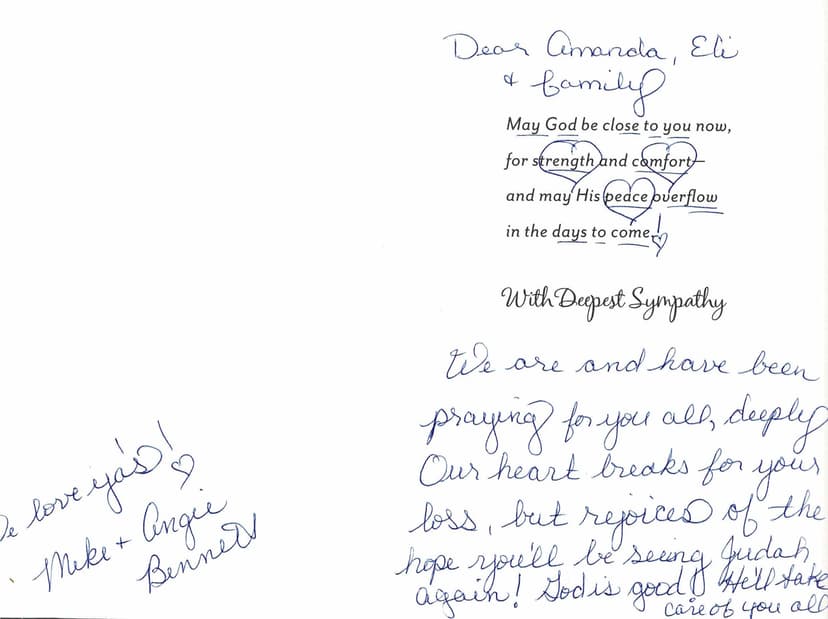 Dear Amanda, Eli
& family
May God be close to you now,
for strength and comfort—
and may His peace overflow
in the days to come!
With Deepest Sympathy
We are and have been
praying for you all, deeply
Our heart breaks for your
loss, but rejoices of the
hope you'll be seeing Judah
again! God is good! He'll take
care of you all
e love ya's!
Mike + Angie
Bennett